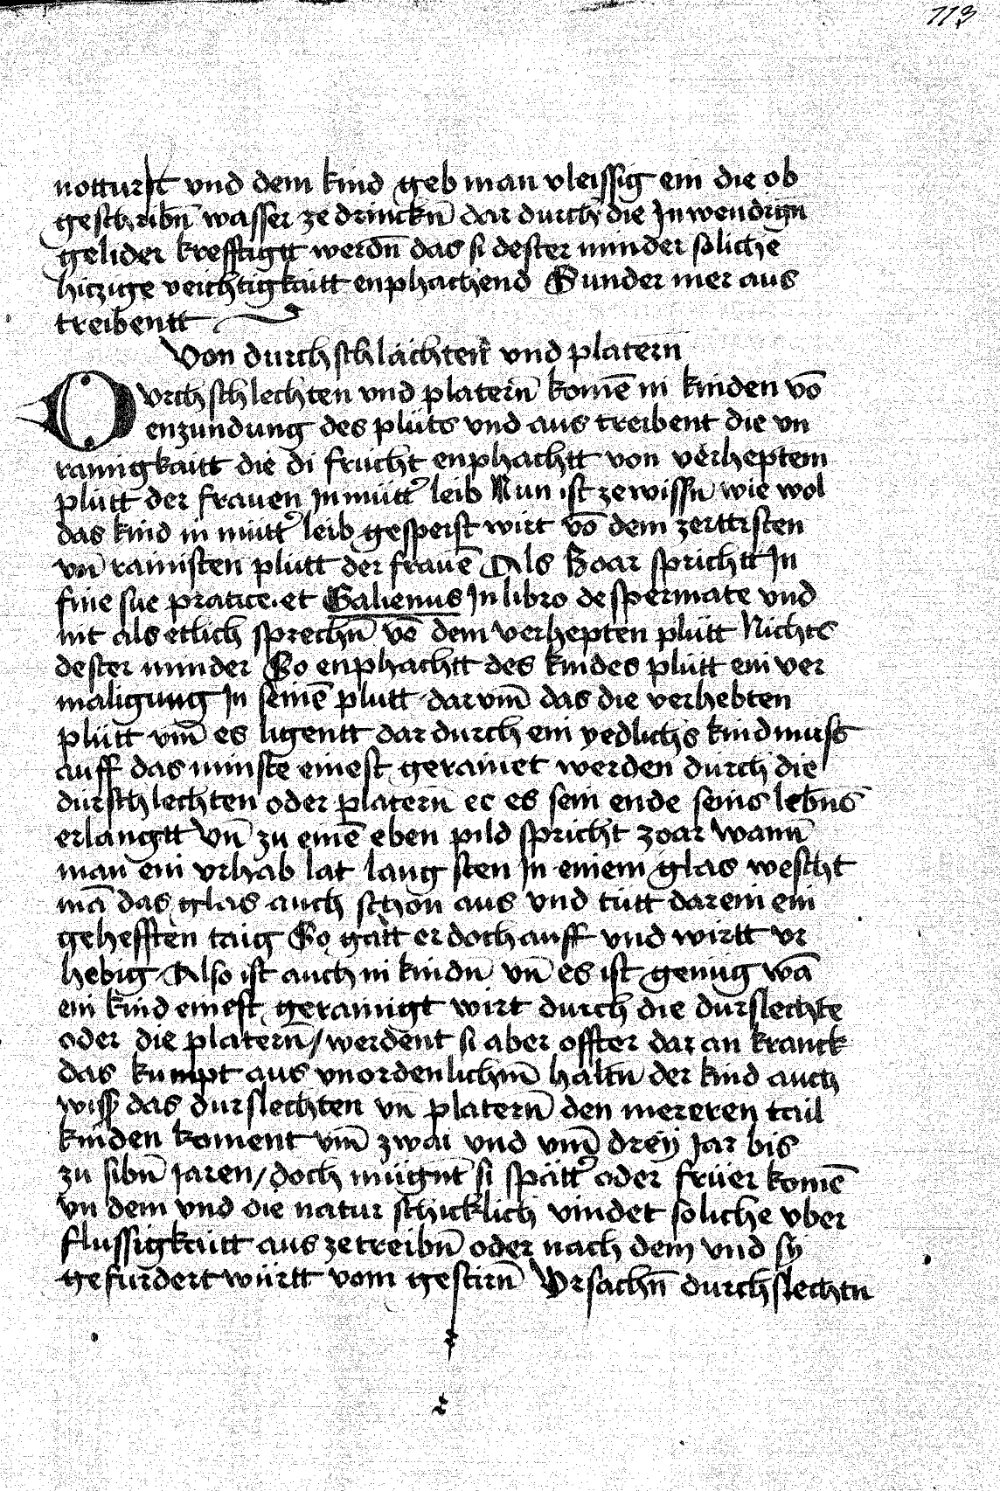 113
notturft vnd dem kind geb man vleissig ein die ob
geschribn̄ wasser ze drinckn̄ dar durch die Inwendign
gelider krefftigtt werdn̄ das si dester minder soliche
hitzige veichtigkaitt enphachend Sunder mer aus
treibentt
Von durchschlächten̄ vnd platern
Durchschlechten vnd platern̄ komē in kinden vō
enzundung des plüts vnd aus treibent die vn
rainigkaitt die di frücht enphachtt von verheptem
plütt der frauen In mütt' leib Nun ist ze wissn̄ wie wol
das kind in mütt' leib gespeist wirt vō dem zerttisten
vn̄ rainisten plutt der frauē Als Zoar sprichtt In
fine sue pratice. et Galienus In libro de spermate vnd
nit als etlich sprechn̄ vō dem verhepten plütt Nichts
dester minder So enphachtt des kindes plütt ein ver
maligung In seinē plutt dar vm̄ das die verhebten
plütt vm̄ es ligentt dar durch ein yedlichs kind muss
auff das minste einest gerainet werden durch die
durschlechten oder platern̄ ee es sein ende seins lebn̄s
erlangtt Vn̄ zu einē eben pild spricht zoar wann̄
man ein vrhab lat lang sten In einem glas wescht
mā das glas auch schon aus vnd tütt darein ein
gehefften taig So gätt er doch auff vnd wirtt vr
hebig Also ist auch in kindn̄ vn̄ es ist genüg wā
ein kind einest gerainigt wirt durch die durslechte
oder die platern̄ / werdent si aber offter dar an kranck
das kumpt aus vnordenlichm̄ haltn̄ der kind auch
wiss das durslechten vn̄ platern̄ den mereren tail
kinden koment vm̄ zwai vnd vm̄ dreÿ Jar bis
zu sibn̄ Jaren / doch mügnt si spätt' oder früer komē
vn dem vnd die natur schicklich vindet soliche vber
flussigkaitt aus ze treibn̄ oder nach dem vnd sÿ
gefürdert württ vom gestirn̄ Vrsachn̄ durchslechtn